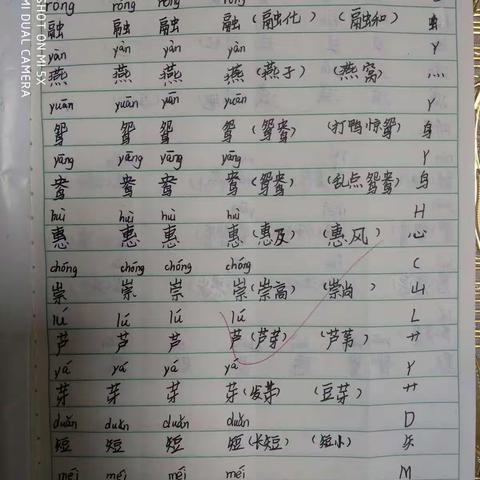 róng róng róng róng
融 融 融 融(融化) (融和) 虫
yàn yàn yàn yàn Y
燕 燕 燕 燕(燕子) (燕窝) 灬
yuān yuān yuān yuān Y
鸳 鸳 鸳 鸳(鸳鸯) (打鸭惊鸳) 鸟
yāng yāng yāng yāng Y
鸯 鸯 鸯 鸯(鸳鸯) (乱点鸳鸯) 鸟
huì huì huì huì H
惠 惠 惠 惠(惠及) (惠风) 心
chóng chóng chóng chóng C
崇 崇 崇 崇(崇高) (崇尚) 山
lú lú lú lú L
芦 芦 芦 芦(芦芽) (芦苇) 艹
yá yá yá yá Y
芽 芽 芽 芽(发芽) (豆芽) 艹
duǎn duǎn duǎn duǎn D
短 短 短 短(长短) (短小) 矢
méi méi méi méi M
SHOT ON MI 5X
MI DUAL CAMERA